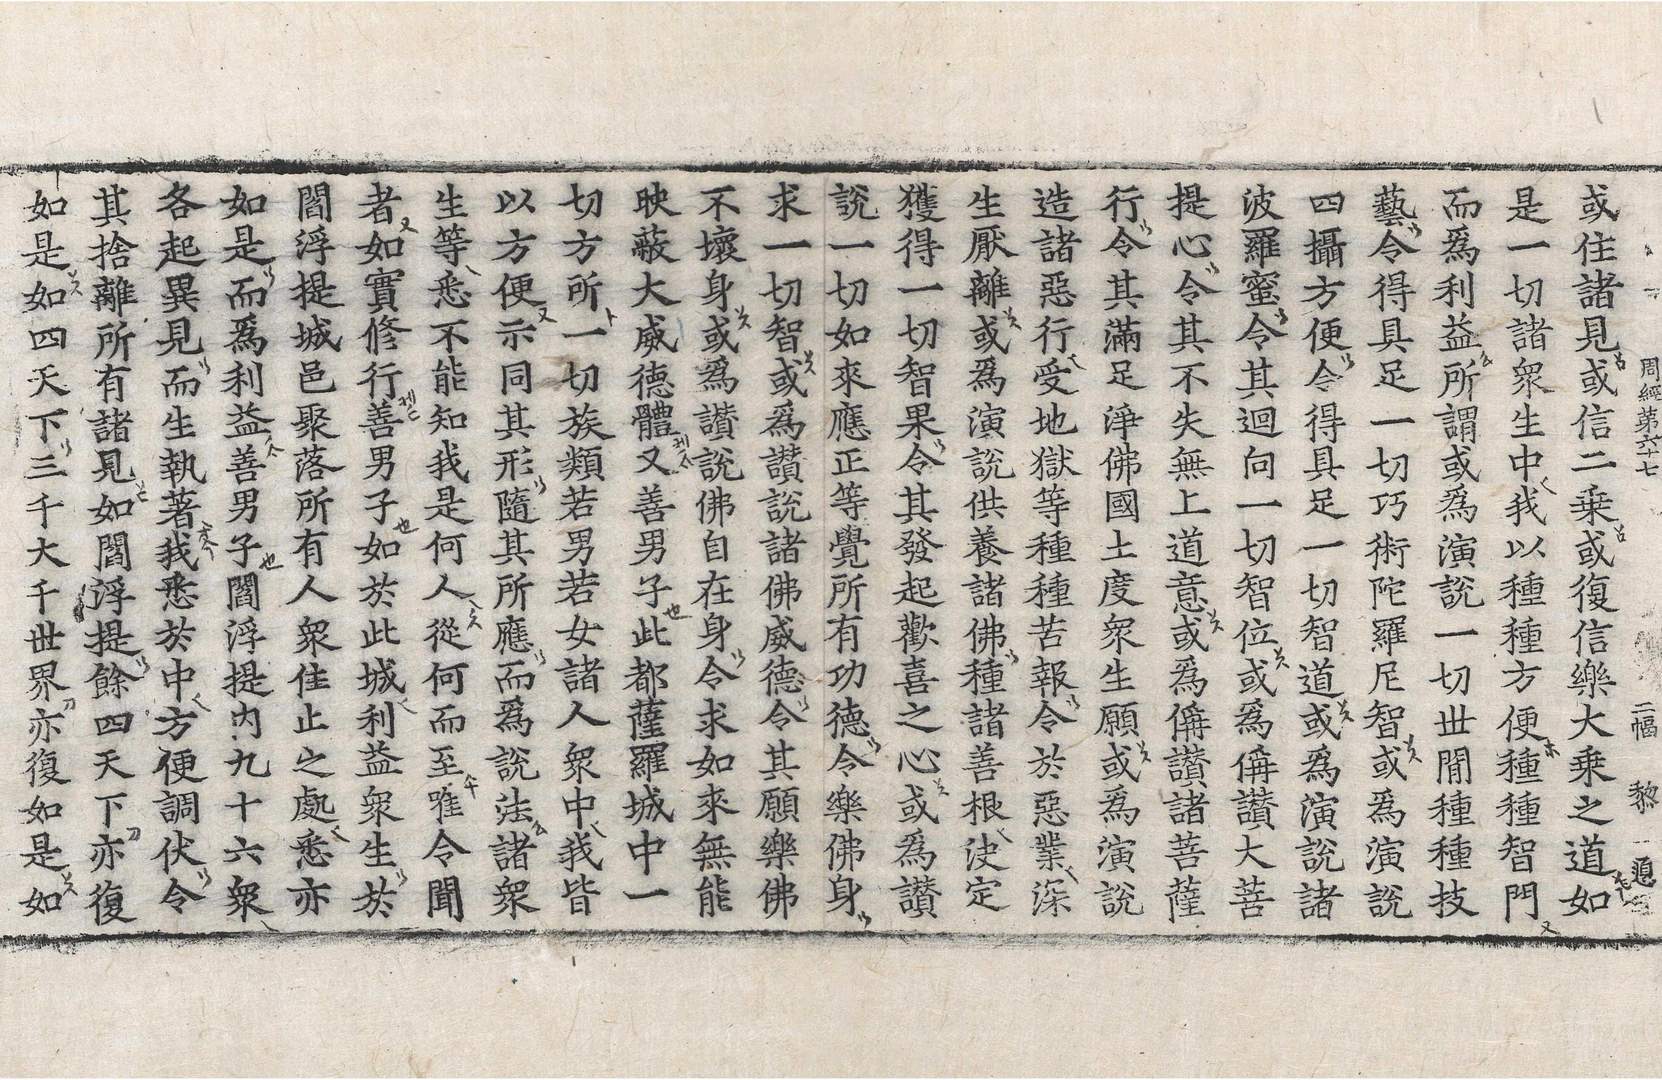 周經第六十七 二幅 黎
或住諸見或信二乘或復信樂大乘之道如
是一切諸衆生中我以種種方便種種智門
而爲利益所謂或爲演說一切世間種種技
藝令得具足一切巧術陀羅尼智或爲演說
四攝方便令得具足一切智道或爲演說諸
波羅蜜令其迴向一切智位或爲偁讚大菩
提心令其不失無上道意或爲偁讚諸菩薩
行令其滿足淨佛國土度衆生願或爲演說
造諸惡行受地獄等種種苦報令於惡業深
生厭離或爲演說供養諸佛種諸善根決定
獲得一切智果令其發起歡喜之心或爲讚
說一切如來應正等覺所有功德令樂佛身
求一切智或爲讚說諸佛威德令其願樂佛
不壞身或爲讚說佛自在身令求如來無能
映蔽大威德體又善男子此都薩羅城中一
切方所一切族類若男若女諸人衆中我皆
以方便示同其形隨其所應而爲說法諸衆
生等悉不能知我是何人從何而至唯令聞
者如實修行善男子如於此城利益衆生於
閻浮提城邑聚落所有人衆住止之處悉亦
如是而爲利益善男子閻浮提內九十六衆
各起異見而生執著我悉於中方便調伏令
其捨離所有諸見如閻浮提餘四天下亦復
如是如四天下三千大千世界亦復如是如